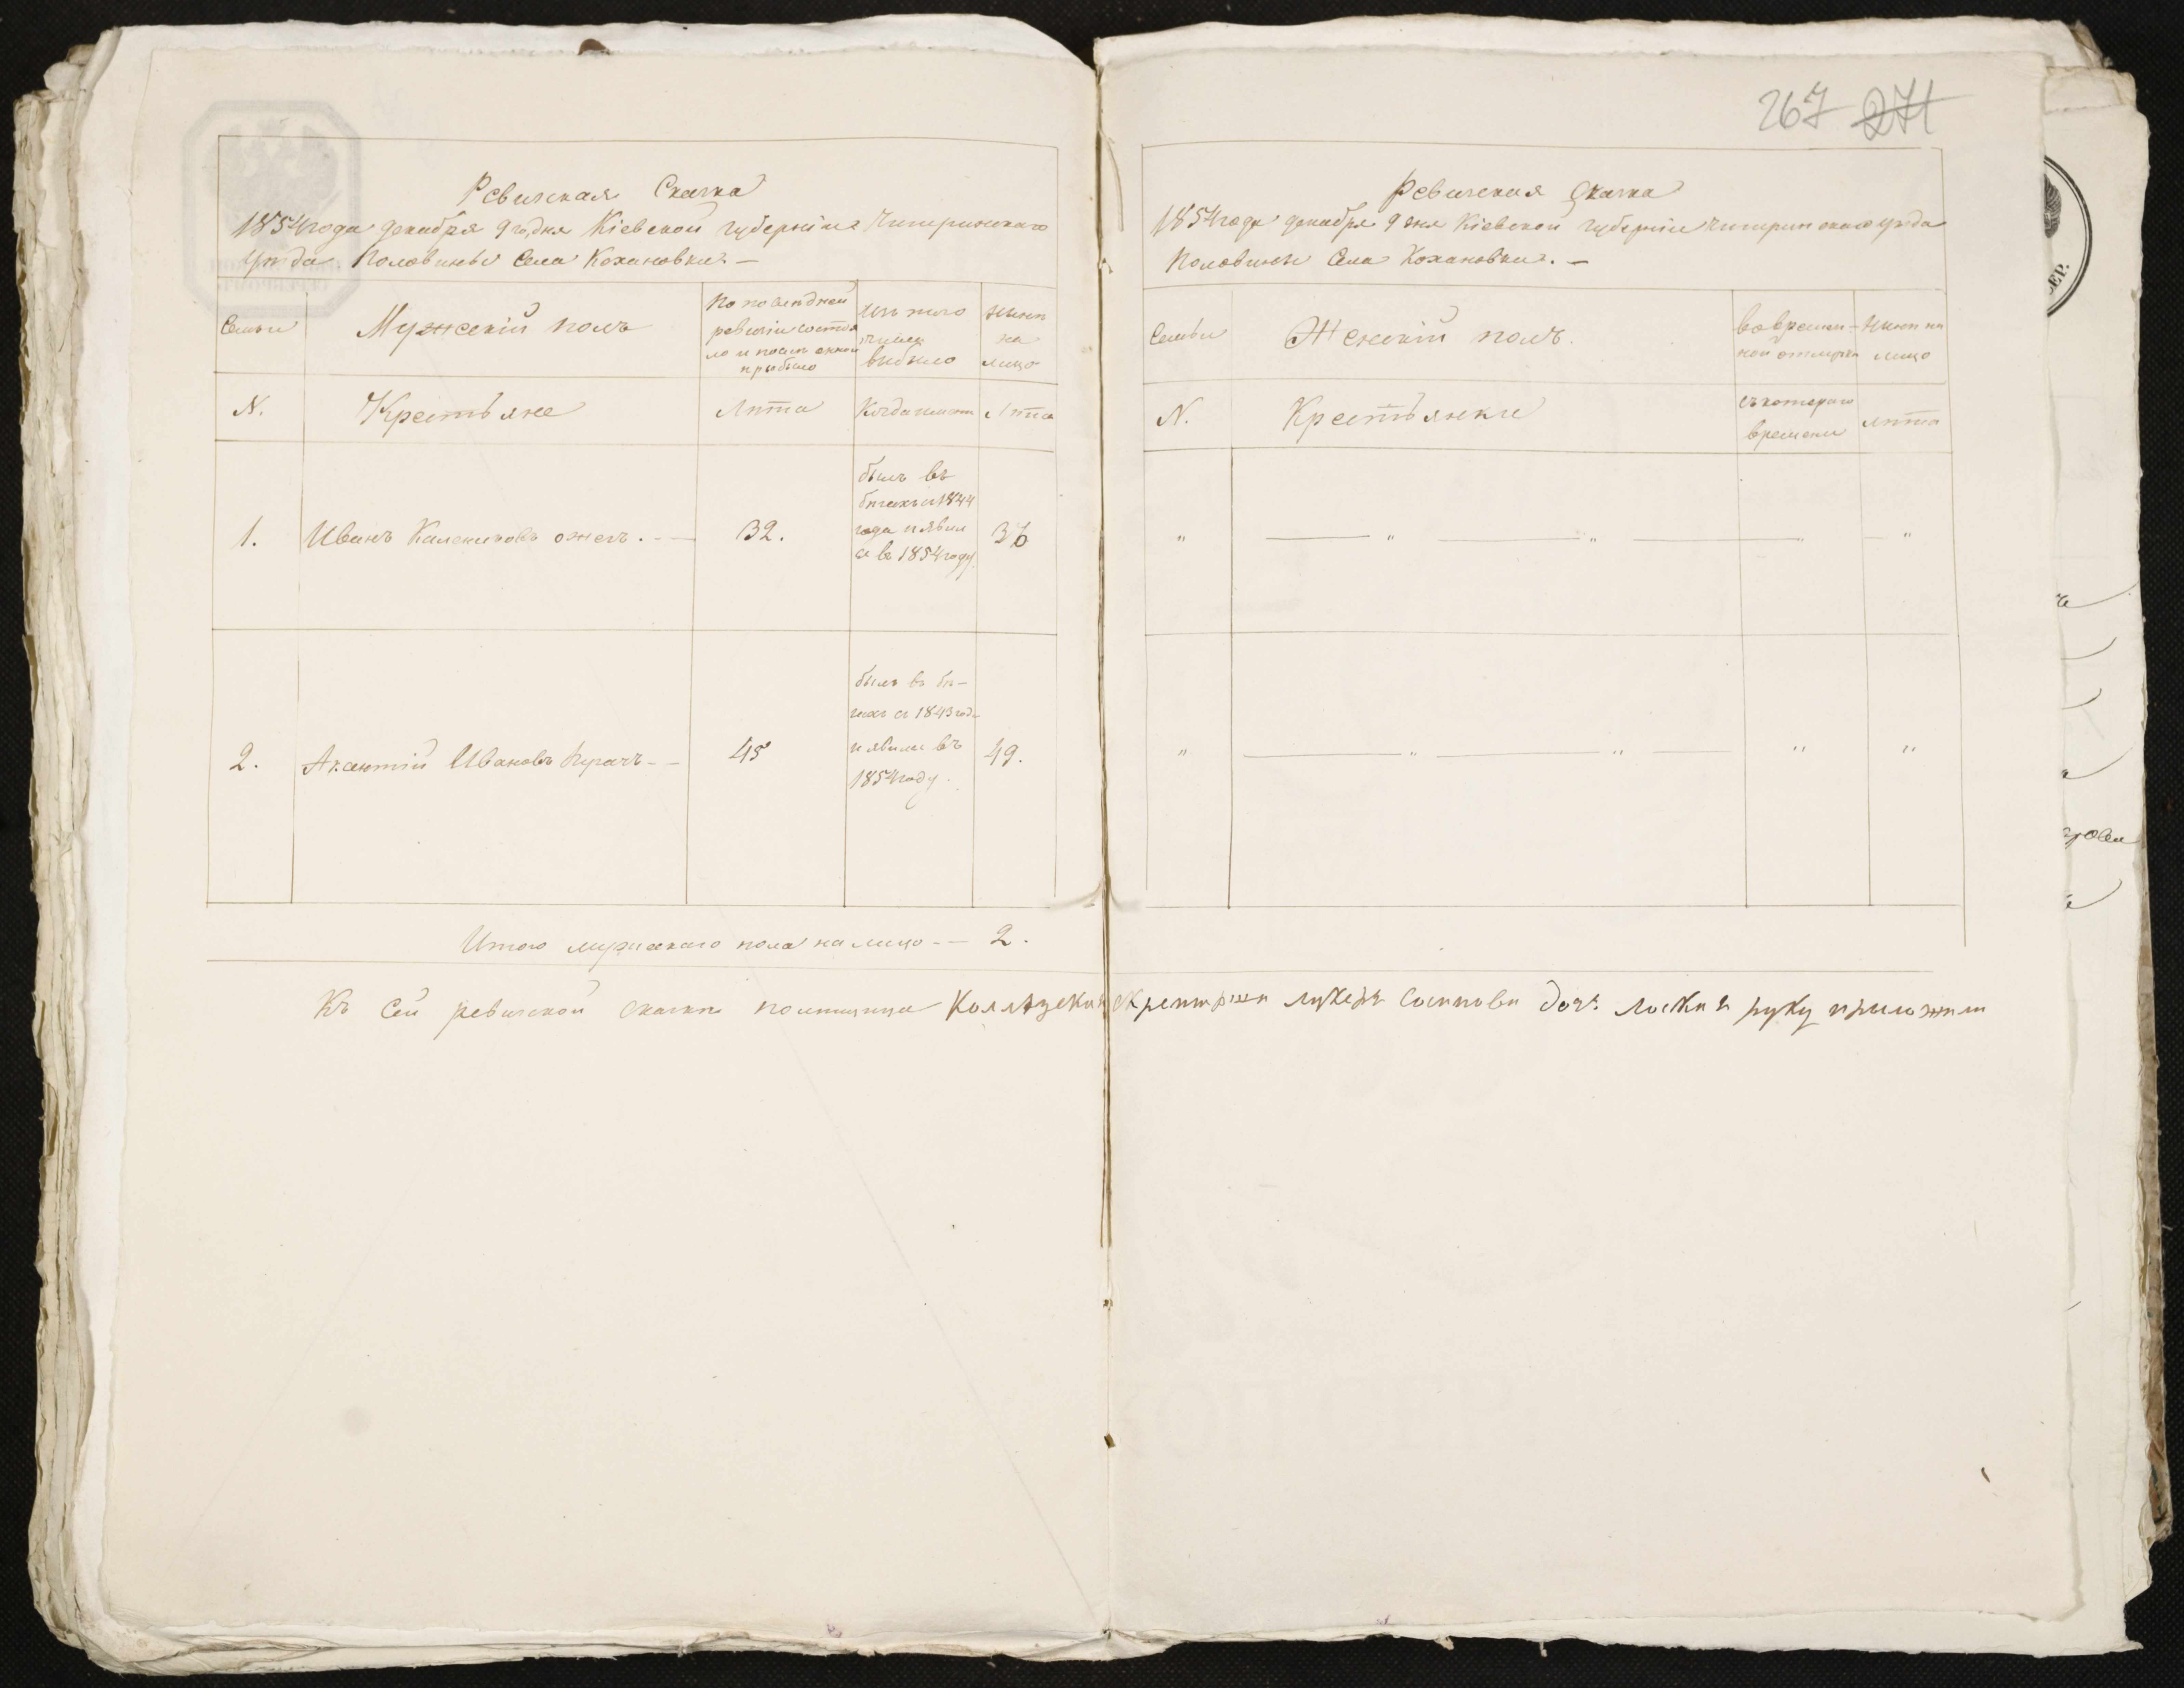 267 271
Ревизская Сказка
1854 года декабря 9 го дня Кіевской губерніи Чигиринскаго
уѣзда половины Села Кохановки. —
Семьи
Мужескій полъ
По послѣдней
ревизіи состоя
ло и послѣ оной
прибыло
Изъ того
числа
выбыло
Нынѣ
на
лицо
N.
Крестьяне
Лѣта
Когда именно
Лѣта
1.
Иванъ Калениковъ
32.
былъ въ
бѣгахъ съ 1844
года и явил
ся въ 1854 году
36
2.
Ивановъ
45
былъ въ бѣ-
гахъ съ 1843 года
и явился въ
1854 году.
49.
Итого мужескаго пола на лицо — 2.
Ревизская Сказка
1854 года декабря 9 дня Кіевской губерніи Чигиринскаго уѣзда
Половины Села Кохановки. —
Семьи
Женскій полъ.
Во времен-
ной отлучкѣ
Нынѣ на
лицо
N.
Крестьянки
съ котораго
времени
Лѣта
" — " — " — " — "
" — " — " — " "
Къ Сей ревизской сказкѣ помѣщица руку приложила